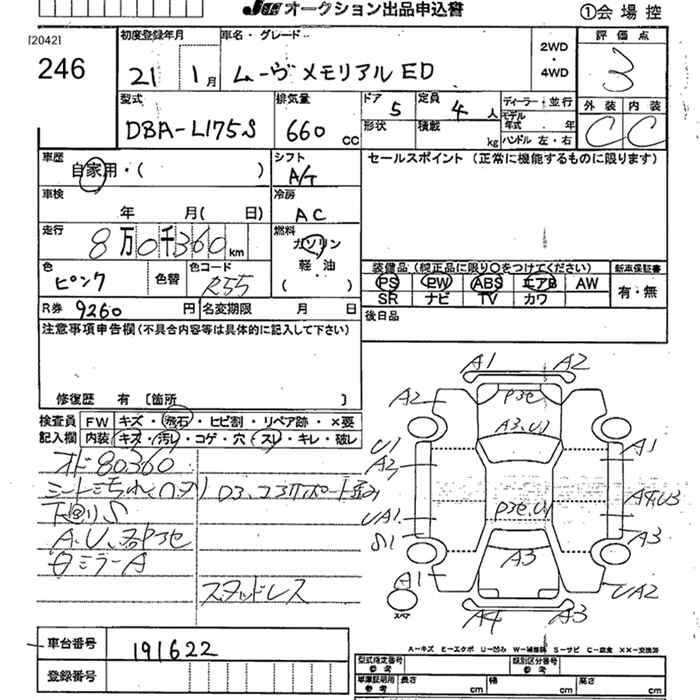 JU オークション出品申込書
①会場控
120421
246
初度登録年月
21 1月
車名・グレード
ムーヴ メモリアル ED
2WD
・
4WD
評価点
3
外装 内装
C C
型式
DBA-L175S
排気量
660 cc
ドア 5
定員 4人
形状
積載 kg
ディーラー・並行
モデル年式 年
ハンドル 左・右
車歴
自家用・( )
シフト
A/T
セールスポイント (正常に機能するものに限ります)
車検
年 月( 日)
冷房
AC
走行
8万0千360km
燃料
ガソリン
軽・油
( )
色
ピンク
色替
色コード
R55
装備品 (純正品に限り○をつけてください)
PS PW ABS エアB AW
SR ナビ TV カワ
新車保証書
有・無
R券 9260円
名変期限 月 日
後日品
注意事項申告欄 (不具合内容等は具体的に記入して下さい)
修復歴 有 [箇所 ]
検査員記入欄
FW キズ・飛石・ヒビ割・リペア跡・×要
内装 キズ・汚レ・コゲ・穴・スレ・キレ・破レ
オド 80360
下回りS
ミラーA
スタッドレス
A1 A2
A2
P3セ
A3、U1
U1
A2
A1
UA1
S1
P3セ、U1
A3
A3
A1
UA2
スペア
A4 A3
A-キズ E-エクボ U-凹み W-補修跡 S-サビ C-腐食 ××-交換済
車台番号 191622
登録番号
型式指定番号 参考
類別区分番号 参考
車庫証明用 参考
長さ cm
幅 cm
高さ cm